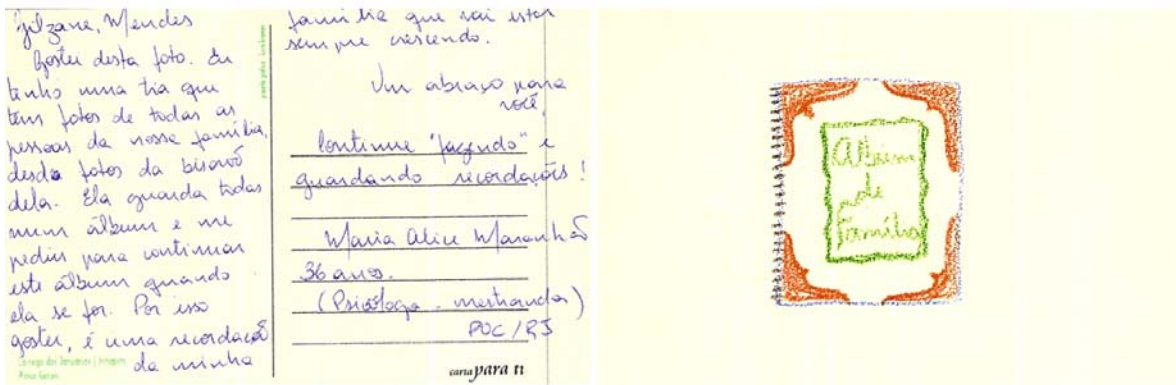 Gilzane, Mendes
Gostei desta foto. Eu
tenho uma tia que
tem fotos de todas as
pessoas da nossa família,
desde fotos da bisavó
dela. Ela guarda todas
num álbum e me
pediu para continuar
este álbum quando
ela se for. Por isso
gostei, é uma recordação
da minha
família que vai estar
sempre crescendo.
Um abraço para
você,
Continue "fazendo" e
guardando recordações!
Maria Alice Maranhão
36 anos.
(Psicóloga - mestranda)
PUC/RJ
carta para ti
Álbum
de
Família